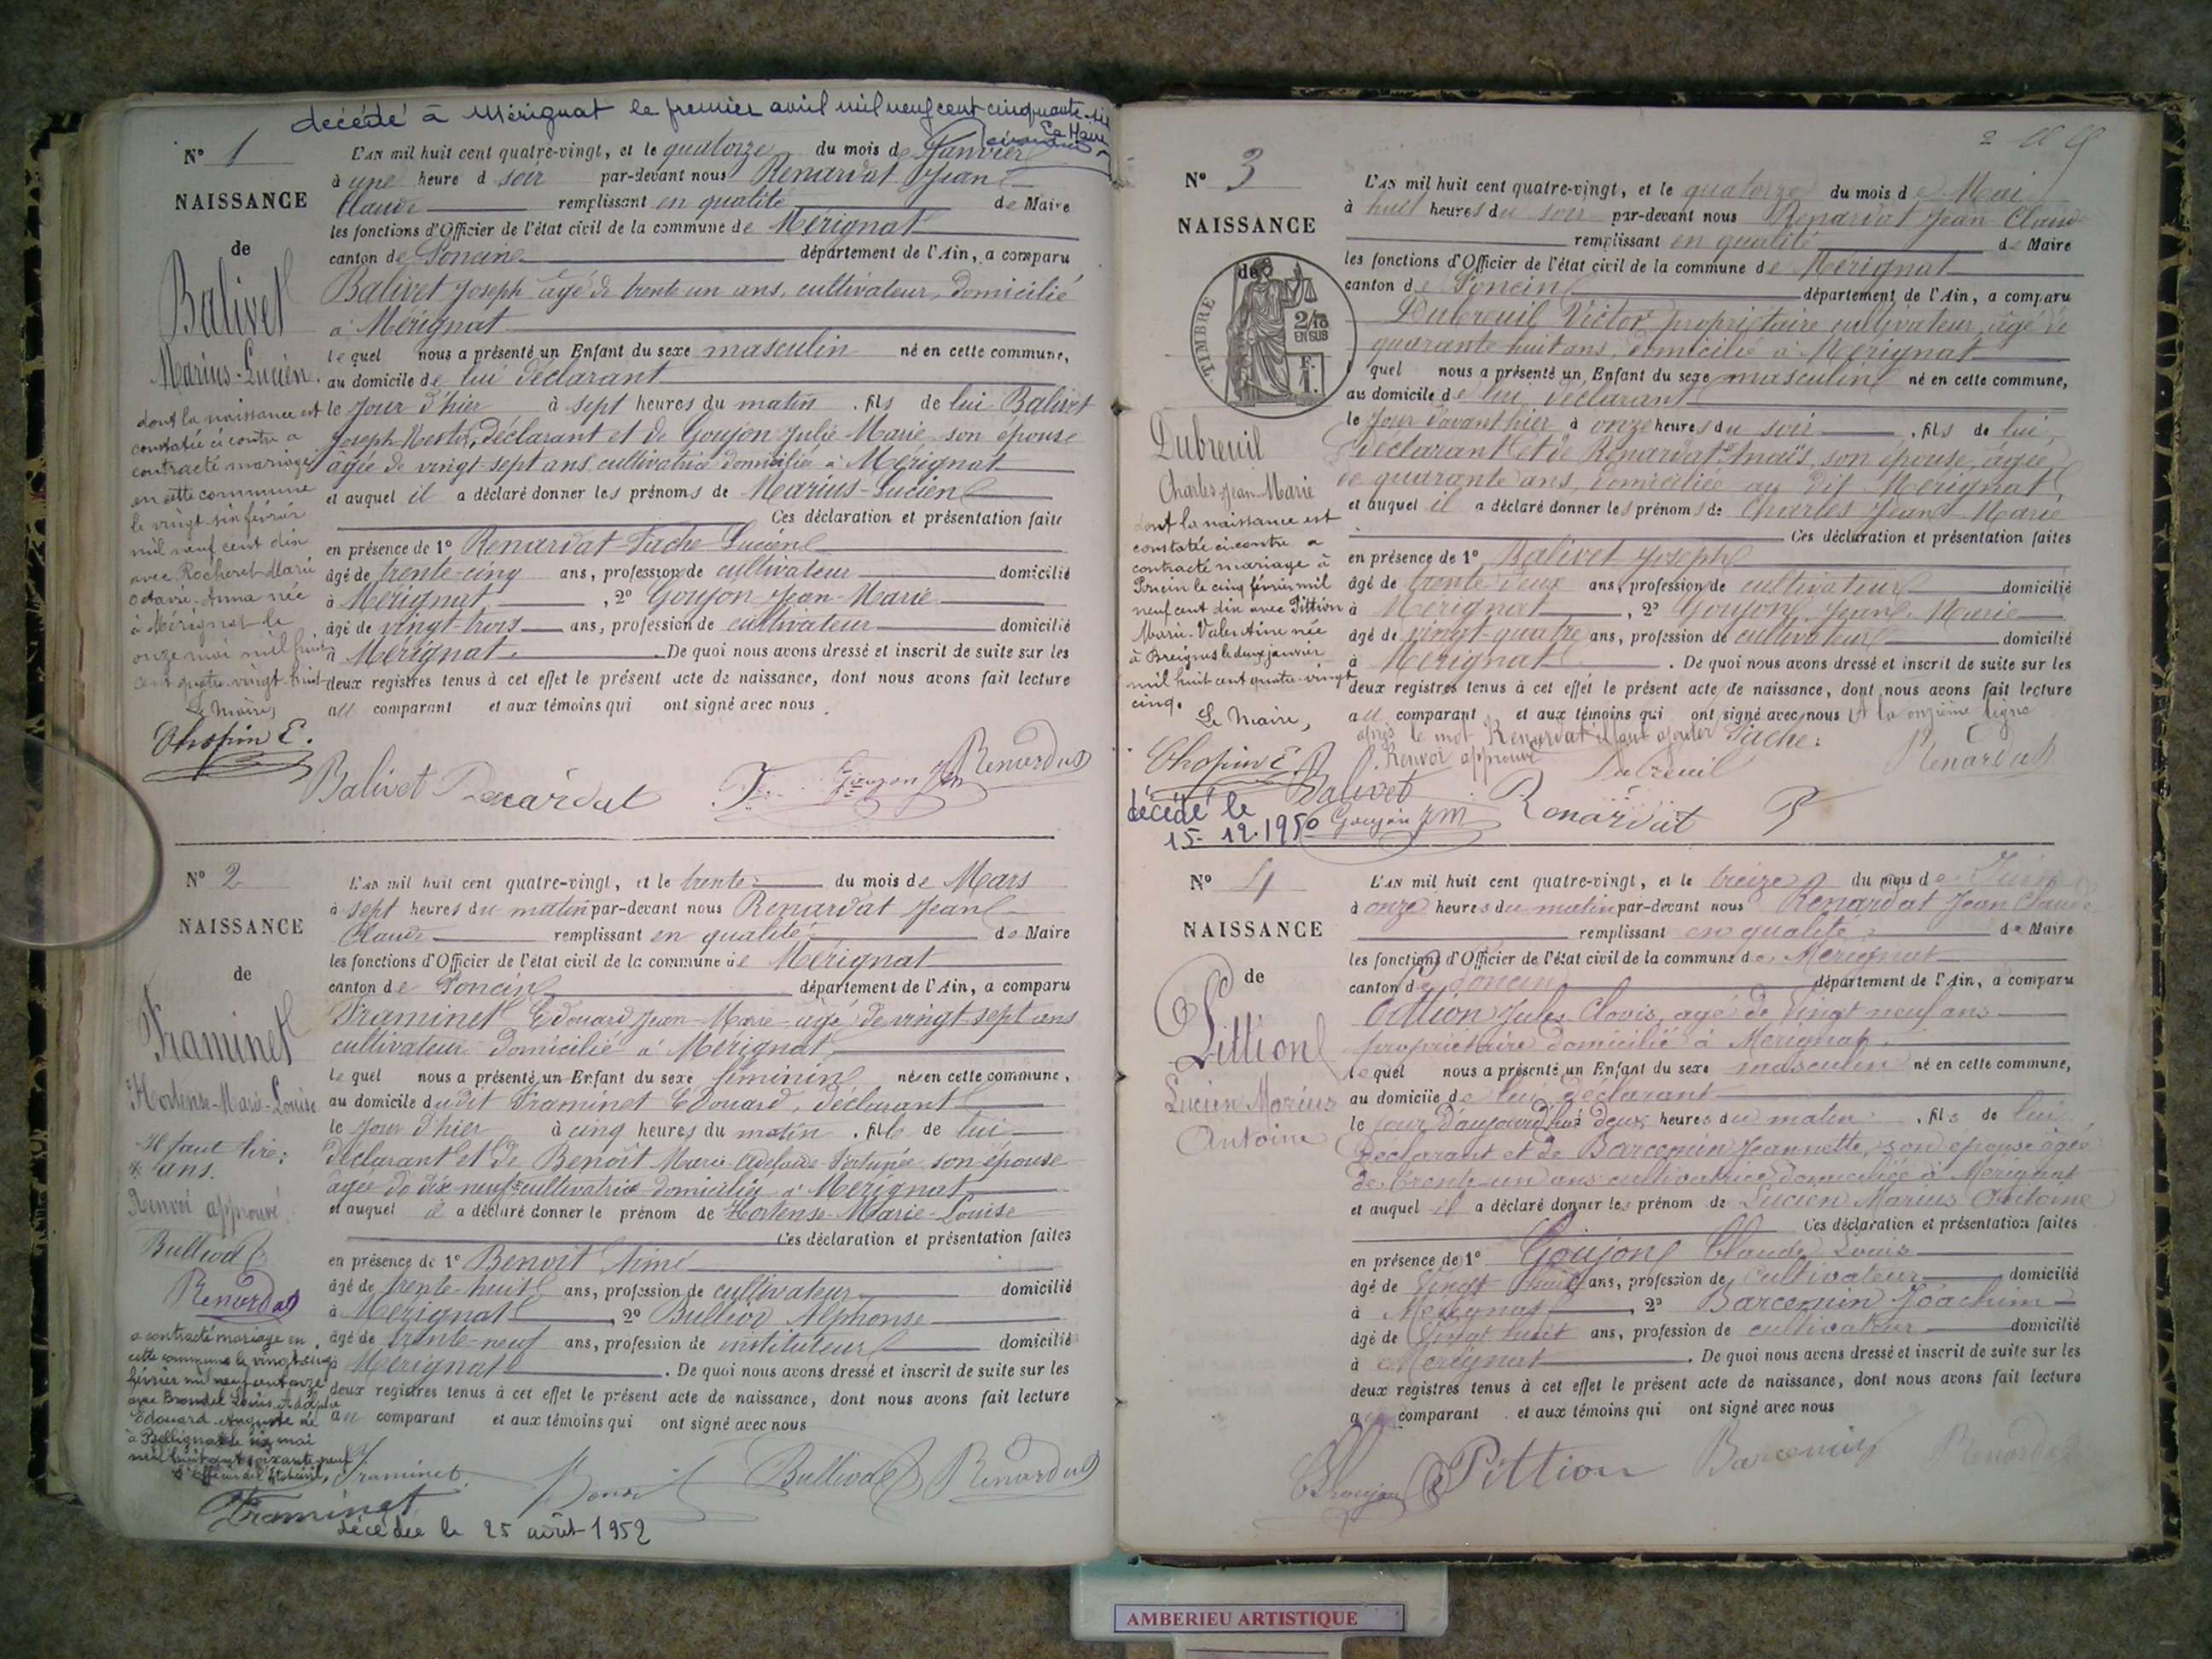 décédé à Mérignat le premier avril mil neuf cent cinquante-six
Le Maire
N° 1
NAISSANCE
de
Balivet
Marius-Lucien.
dont la naissance est
constatée ci contre a
contracté mariage
en cette commune
le vingt-six février
mil neuf cent dix
avec Rocheret Marie
Octavie-Anna née
à Mérignat le
onze mai mil huit
cent quatre-vingt-huit
Le Maire,
Chopin E.
L'AN mil huit cent quatre-vingt, et le quatorze du mois de Janvier
à une heure d soir par-devant nous Renardat Jean
Claude remplissant en qualité de Maire
les fonctions d'Officier de l'état civil de la commune de Mérignat
canton de Poncin département de l'Ain, a comparu
Balivet Joseph âgé de trente un ans, cultivateur, domicilié
à Mérignat
lequel nous a présenté un Enfant du sexe masculin né en cette commune,
au domicile de lui déclarant
le jour d'hier à sept heures du matin . fils de lui Balivet
Joseph Nestor, déclarant et de Goujon Julie Marie son épouse
âgée de vingt-sept ans cultivatrice domiciliée à Mérignat
et auquel il a déclaré donner les prénoms de Marius-Lucien
Ces déclaration et présentation faite
en présence de 1° Renardat-Fache Lucien
âgé de trente-cinq ans, profession de cultivateur domicilié
à Mérignat , 2° Goujon Jean-Marie
âgé de vingt-trois ans, profession de cultivateur domicilié
à Mérignat . De quoi nous avons dressé et inscrit de suite sur les
deux registres tenus à cet effet le présent acte de naissance, dont nous avons fait lecture
au comparant et aux témoins qui ont signé avec nous.
Balivet Renardat F. Goujon Jm Renardat
N° 2
NAISSANCE
de
Framinet
Hortense-Marie-Louise
Il faut lire:
* ans.
Renvoi approuvé
Bulliod
Renardat
a contracté mariage en
cette commune le vingt-cinq
février mil neuf cent onze
avec Brondel Louis Adolphe
Edouard-Auguste né
à Bellignat le six mai
mil huit cent soixante-neuf
L'officier de l'Etat civil,
Framinet
L'AN mil huit cent quatre-vingt, et le trente du mois de Mars
à sept heures du matin par-devant nous Renardat Jean
Claude remplissant en qualité de Maire
les fonctions d'Officier de l'état civil de la commune de Mérignat
canton de Poncin département de l'Ain, a comparu
Framinet Edouard Jean-Marie âgé de vingt-sept ans
cultivateur domicilié à Mérignat
lequel nous a présenté un Enfant du sexe féminin née en cette commune,
au domicile dudit Framinet Edouard, déclarant
le jour d'hier à cinq heures du matin . fille de lui
déclarant et de Benoît Marie Adelaïde Fortunée son épouse
âgée de dix neuf * cultivatrice domiciliée à Mérignat
et auquel il a déclaré donner le prénom de Hortense-Marie-Louise
Ces déclaration et présentation faites
en présence de 1° Benoit Aimé
âgé de trente-huit ans, profession de cultivateur domicilié
à Mérignat , 2° Bulliod Alphonse
âgé de trente-neuf ans, profession de instituteur domicilié
à Mérignat . De quoi nous avons dressé et inscrit de suite sur les
deux registres tenus à cet effet le présent acte de naissance, dont nous avons fait lecture
au comparant et aux témoins qui ont signé avec nous
Framinet Benoit Bulliod Renardat
décédée le 25 août 1952
N° 3
NAISSANCE
de
TIMBRE
2/10
EN SUS
F.
1.
Dubreuil
Charles-Jean-Marie
dont la naissance est
constatée ci-contre a
contracté mariage à
Poncin le cinq février mil
neuf cent dix avec Pittion
Marie-Valentine née
à Breignes le deux janvier
mil huit cent quatre-vingt
cinq.
Le Maire,
Chopin E.
décédé le
15-12-1950
L'AN mil huit cent quatre-vingt, et le quatorze du mois de Mai
à huit heures du soir par-devant nous Renardat Jean Claude
remplissant en qualité de Maire
les fonctions d'Officier de l'état civil de la commune de Mérignat
canton de Poncin département de l'Ain, a comparu
Dubreuil Victor propriétaire cultivateur, âgé de
quarante huit ans, domicilié à Mérignat
quel nous a présenté un Enfant du sexe masculin né en cette commune,
au domicile de lui, déclarant
le jour d'avant hier à onze heures du soir . fils de lui,
déclarant et de Renardat Anaïs, son épouse, âgée
de quarante ans, domiciliée au dit Mérignat
et auquel il a déclaré donner les prénoms de Charles Jean Marie
Ces déclaration et présentation faites
en présence de 1° Balivet Joseph
âgé de trente deux ans, profession de cultivateur domicilié
à Mérignat , 2° Goujon Jean-Marie
âgé de vingt-quatre ans, profession de cultivateur domicilié
à Mérignat . De quoi nous avons dressé et inscrit de suite sur les
deux registres tenus à cet effet le présent acte de naissance, dont nous avons fait lecture
au comparant et aux témoins qui ont signé avec nous et la onzième ligne
après le mot Renardat il faut ajouter Fache:
Renvoi approuvé Dubreuil Renardat
Balivet Goujon Jm Renardat F
N° 4
NAISSANCE
de
Pittion
Lucien Marius
Antoine
L'AN mil huit cent quatre-vingt, et le treize du mois de Juin
à onze heures du matin par-devant nous Renardat Jean Claude
remplissant en qualité de Maire
les fonctions d'Officier de l'état civil de la commune de Mérignat
canton de Poncin département de l'Ain, a comparu
Pittion Jules Clovis, âgé de vingt neuf ans
propriétaire domicilié à Mérignat
lequel nous a présenté un Enfant du sexe masculin né en cette commune,
au domicile de lui déclarant
le jour d'aujourd'hui à deux heures du matin . fils de lui
déclarant et de Barcemin Jeannette, son épouse âgée
de trente-un ans cultivatrice domiciliée à Mérignat
et auquel il a déclaré donner les prénom de Lucien Marius Antoine
Ces déclaration et présentation faites
en présence de 1° Goujon Claude Louis
âgé de vingt huit ans, profession de cultivateur domicilié
à Mérignat , 2° Barcemin Joachim
âgé de vingt huit ans, profession de cultivateur domicilié
à Mérignat . De quoi nous avons dressé et inscrit de suite sur les
deux registres tenus à cet effet le présent acte de naissance, dont nous avons fait lecture
au comparant et aux témoins qui ont signé avec nous
Goujon Pittion Barcemin Renardat
AMBERIEU ARTISTIQUE